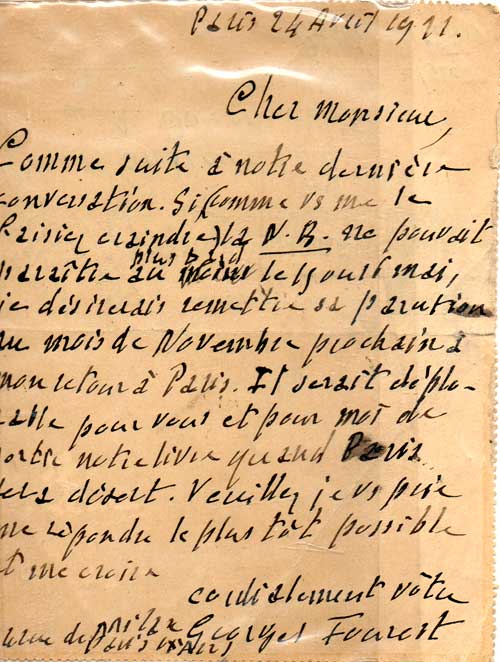 Paris 24 Avril 1911.
Cher Monsieur,
Comme suite à notre dernière
conversation. Si (comme vs me le
faisiez craindre) la N.R. ne pouvait
paraître au plus tard le 15 mai,
je désirerais remettre sa parution
au mois de Novembre prochain à
mon retour à Paris. Il serait déplo-
rable pour vous et pour moi de
sortir notre livre quand Paris
sera désert. Veuillez je vs prie
me répondre le plus tôt possible
et me croire
cordialement vôtre
Georges Fourest
rue de Milan
Paris